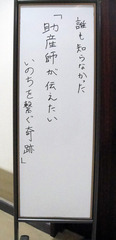 誰も知らなかた
「助産師が伝えたい
いのちを繋ぐ奇跡」